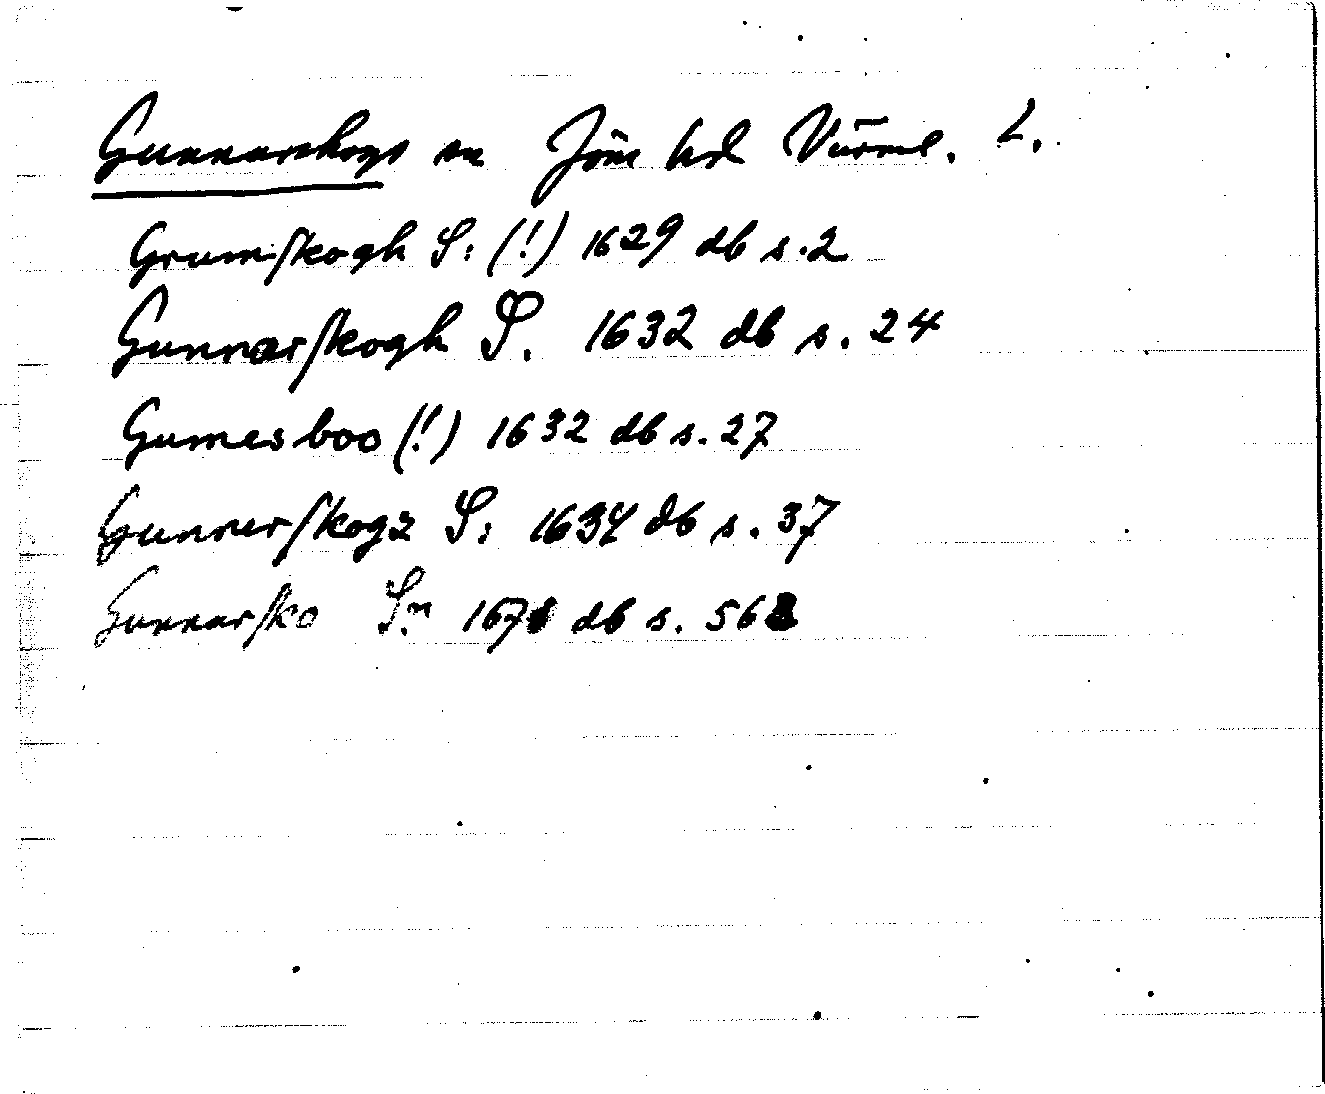 Gunnarskogs sn Jöss hd Värml. L.
Grumſkogh S: (!) 1629 db s. 2
Gunnarſkogh S. 1632 db s. 24
Gumesboo (!) 1632 db s. 27
Gunnerſkogz S: 1634 db s. 37
Gunnarſko S:n db s.